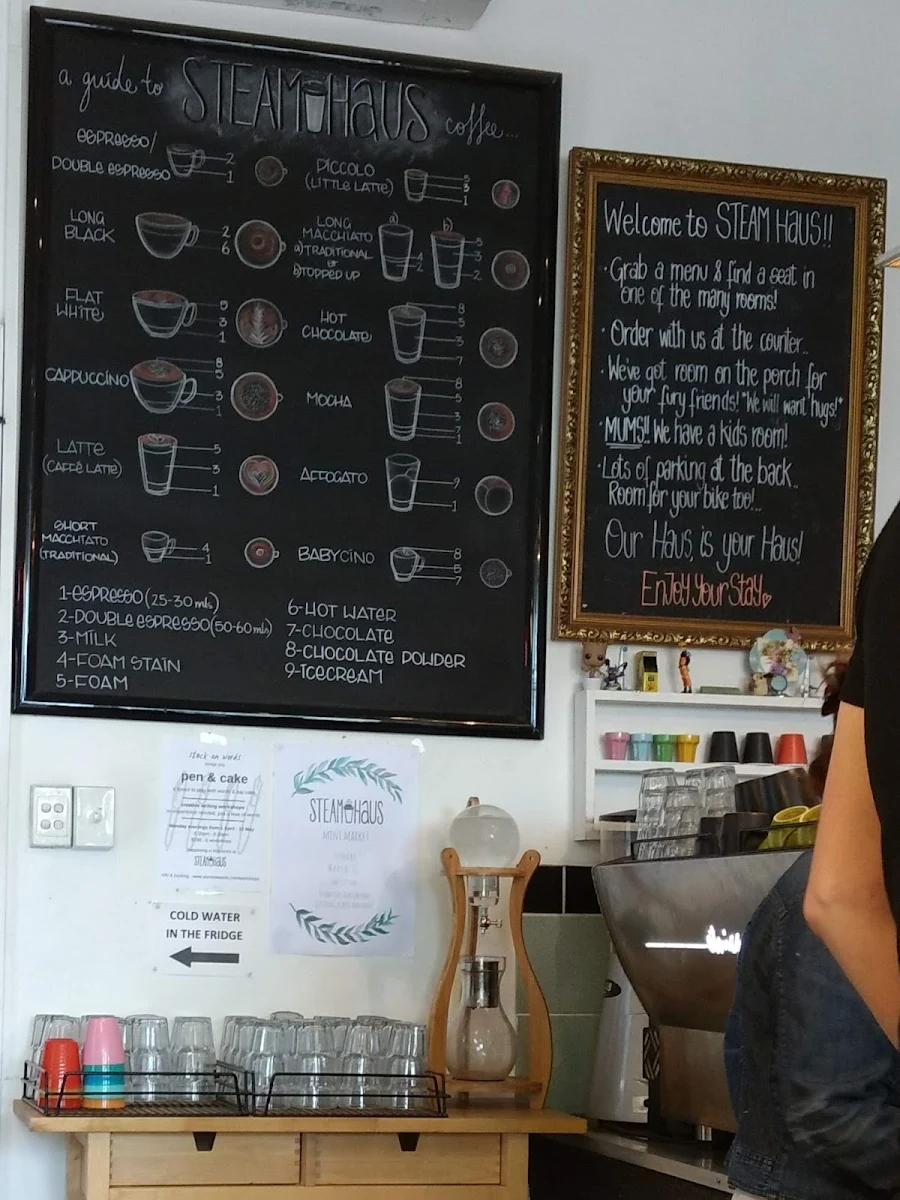 a guide to STEAM HAUS coffee...
ESPRESSO/
DOUBLE ESPRESSO
2
1
LONG
BLACK
2
6
FLAT
WHITE
5
3
1
CAPPUCCINO
8
5
3
1
LATTE
(CAFFÉ LATTE)
5
3
1
SHORT
MACCHIATO
(TRADITIONAL)
4
1
PICCOLO
(LITTLE LATTE)
5
3
1
LONG
MACCHIATO
a)TRADITIONAL
or
b)TOPPED UP
a)
b)
4
2
5
3
2
HOT
CHOCOLATE
8
5
3
7
MOCHA
8
5
3
7
1
AFFOGATO
9
1
BABYCINO
8
5
7
1-ESPRESSO (25-30 mls)
2-DOUBLE ESPRESSO (50-60 mls)
3-MILK
4-FOAM STAIN
5-FOAM
6-HOT WATER
7-CHOCOLATE
8-CHOCOLATE POWDER
9-ICECREAM
Welcome to STEAM HAUS!!
·Grab a menu & find a seat in
one of the many rooms!
·Order with us at the counter..
·We've got room on the porch for
your fury friends! *We will want hugs!*
·MUMS!! We have a kids room!
·Lots of parking at the back..
Room for your bike too!..
Our Haus, is your Haus!
Enjoy Your Stay
stuck on words
pen & cake
creative writing workshops
STEAM HAUS
STEAM HAUS
MINI MARKET
COLD WATER
IN THE FRIDGE